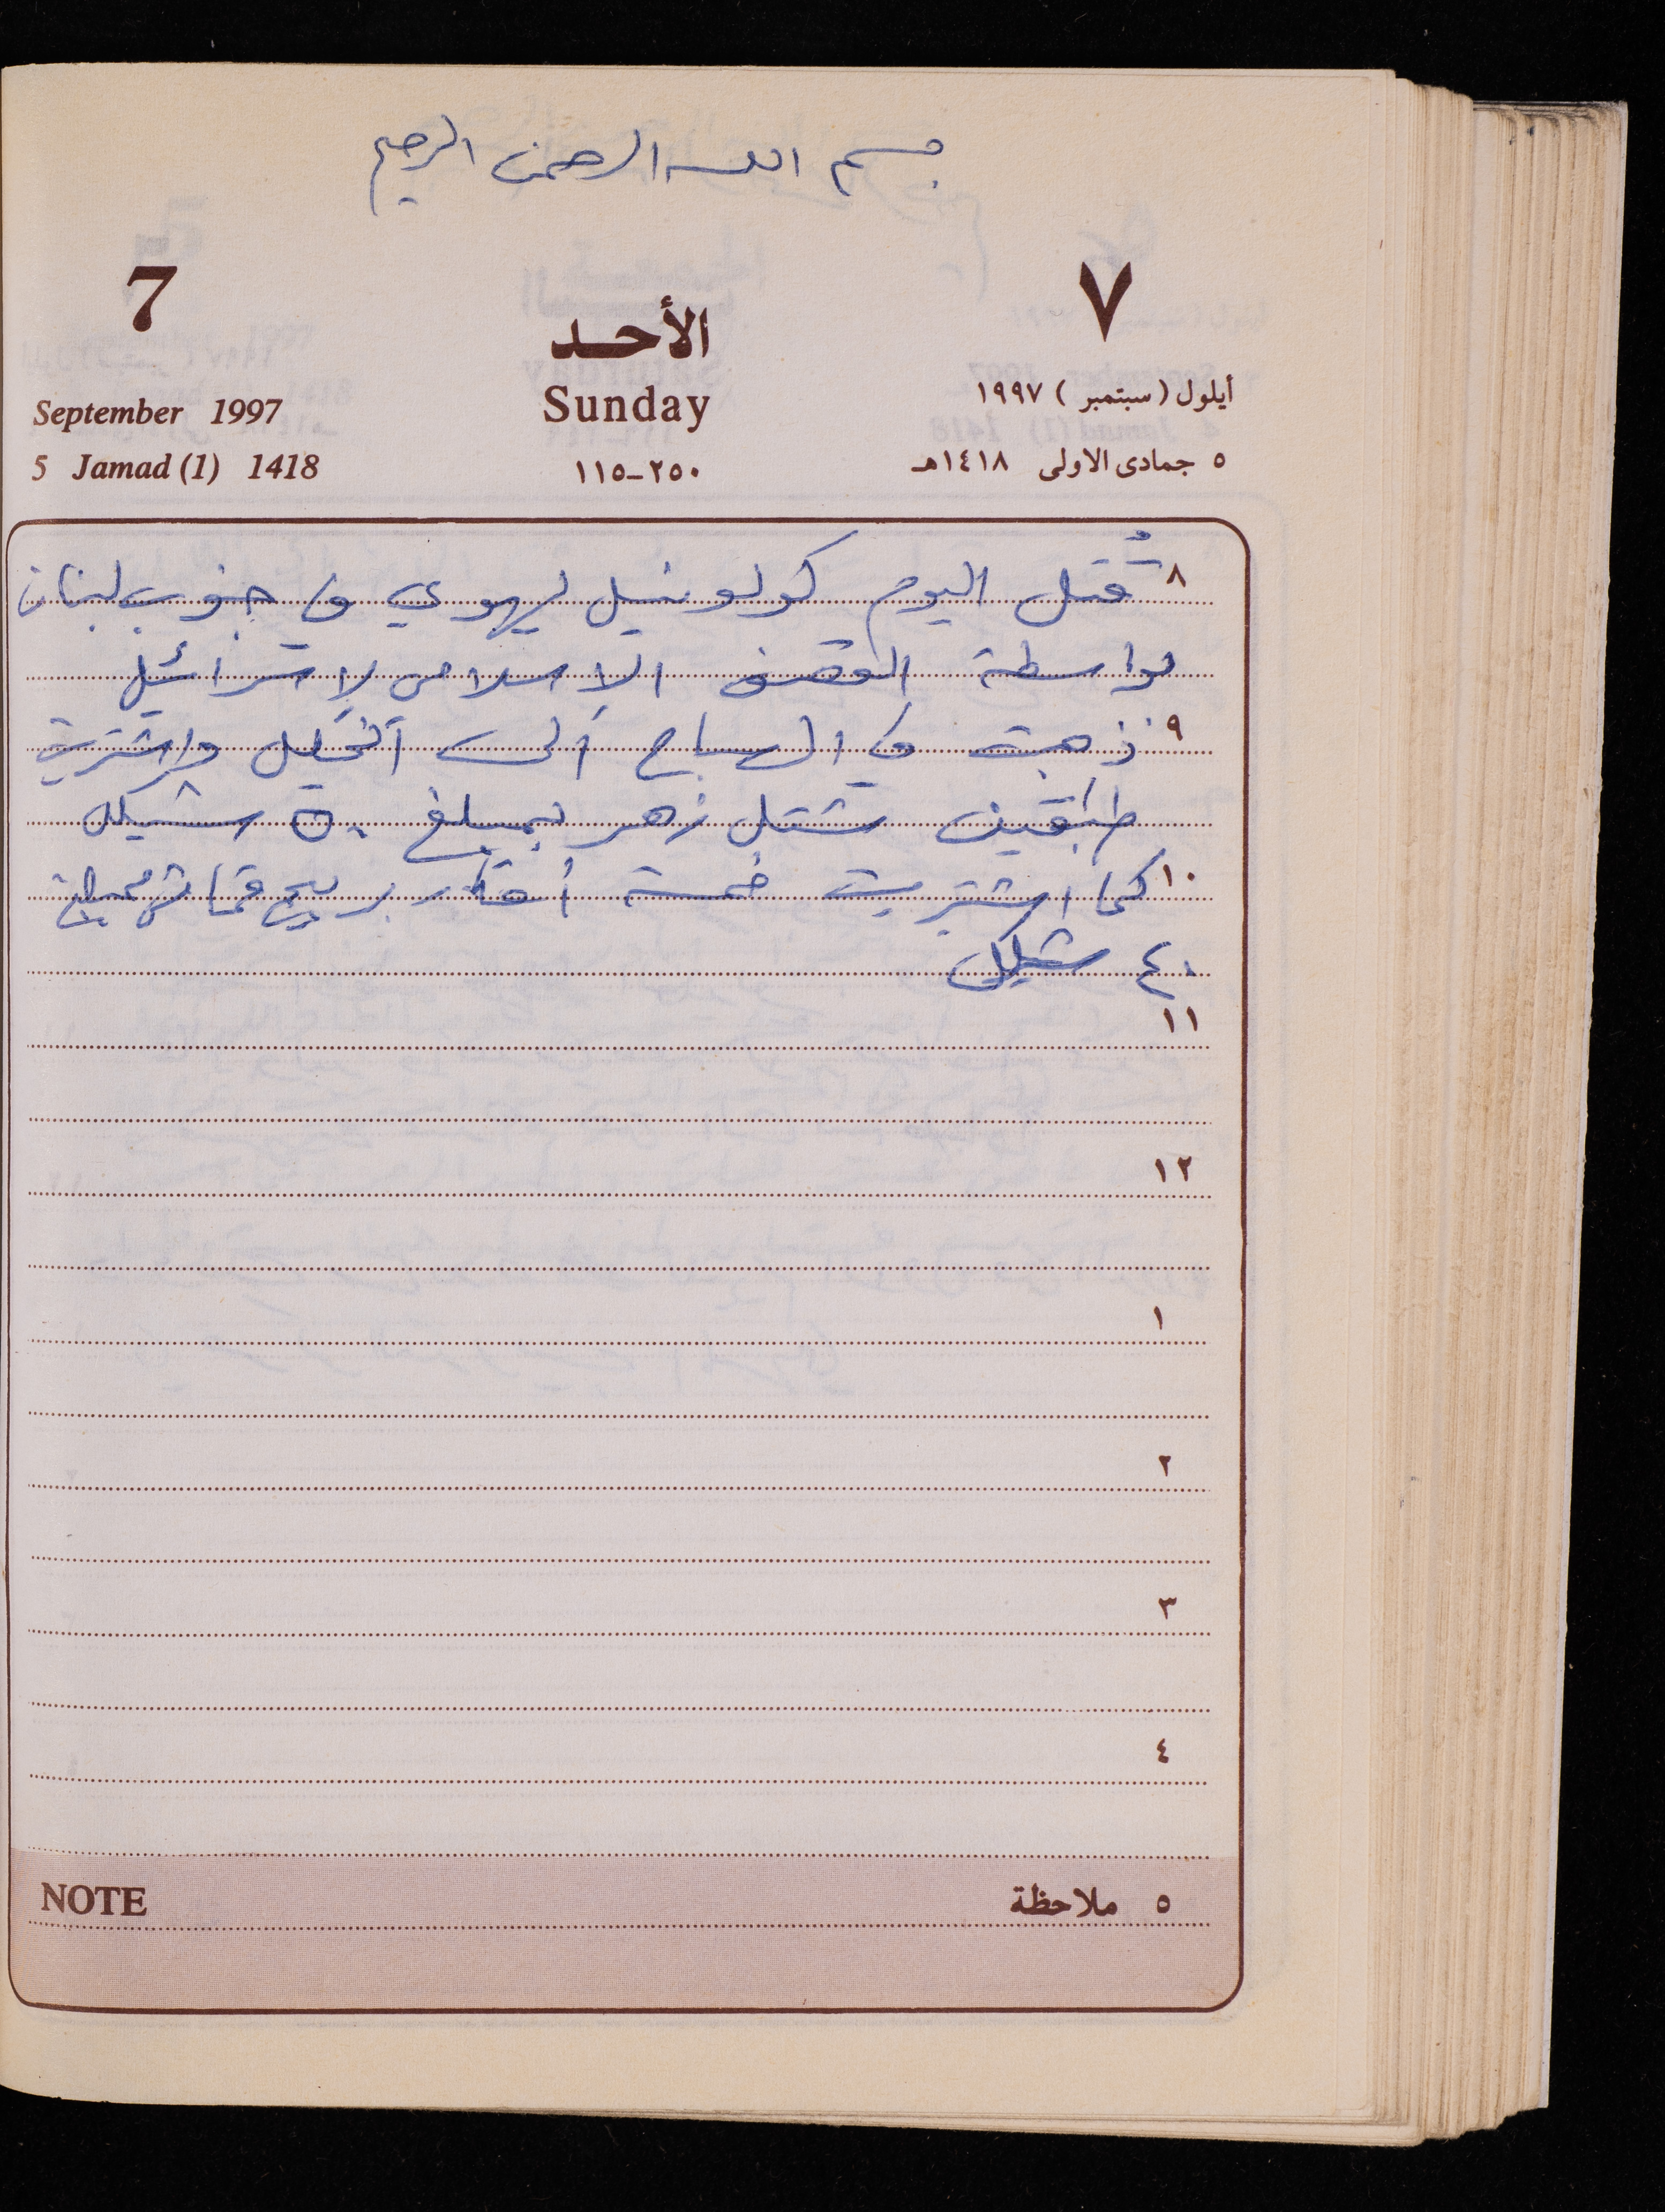 بسم الله الرحمن الرحيم
7 ٧
الأحد
Sunday
September 1997 أيلول (سبتمبر) ١٩٩٧
5 Jamad (1) 1418 ٢٥٠-١١٥ ٥ جمادى الاولى ١٤١٨هـ
٨ قُتل اليوم كولونيل يهودي في جنوب لبنان
بواسطة القصف الإسلامي لإسرائيل
٩ ذهبت في الصباح الى الخليل واشتريت
طبقين شتل زهر بمبلغ ٥٠ شيكل
١٠ كما اشتريت خمسة قماش
٤٠ شيكل
١١
١٢
١
٢
٣
٤
NOTE ٥ ملاحظة